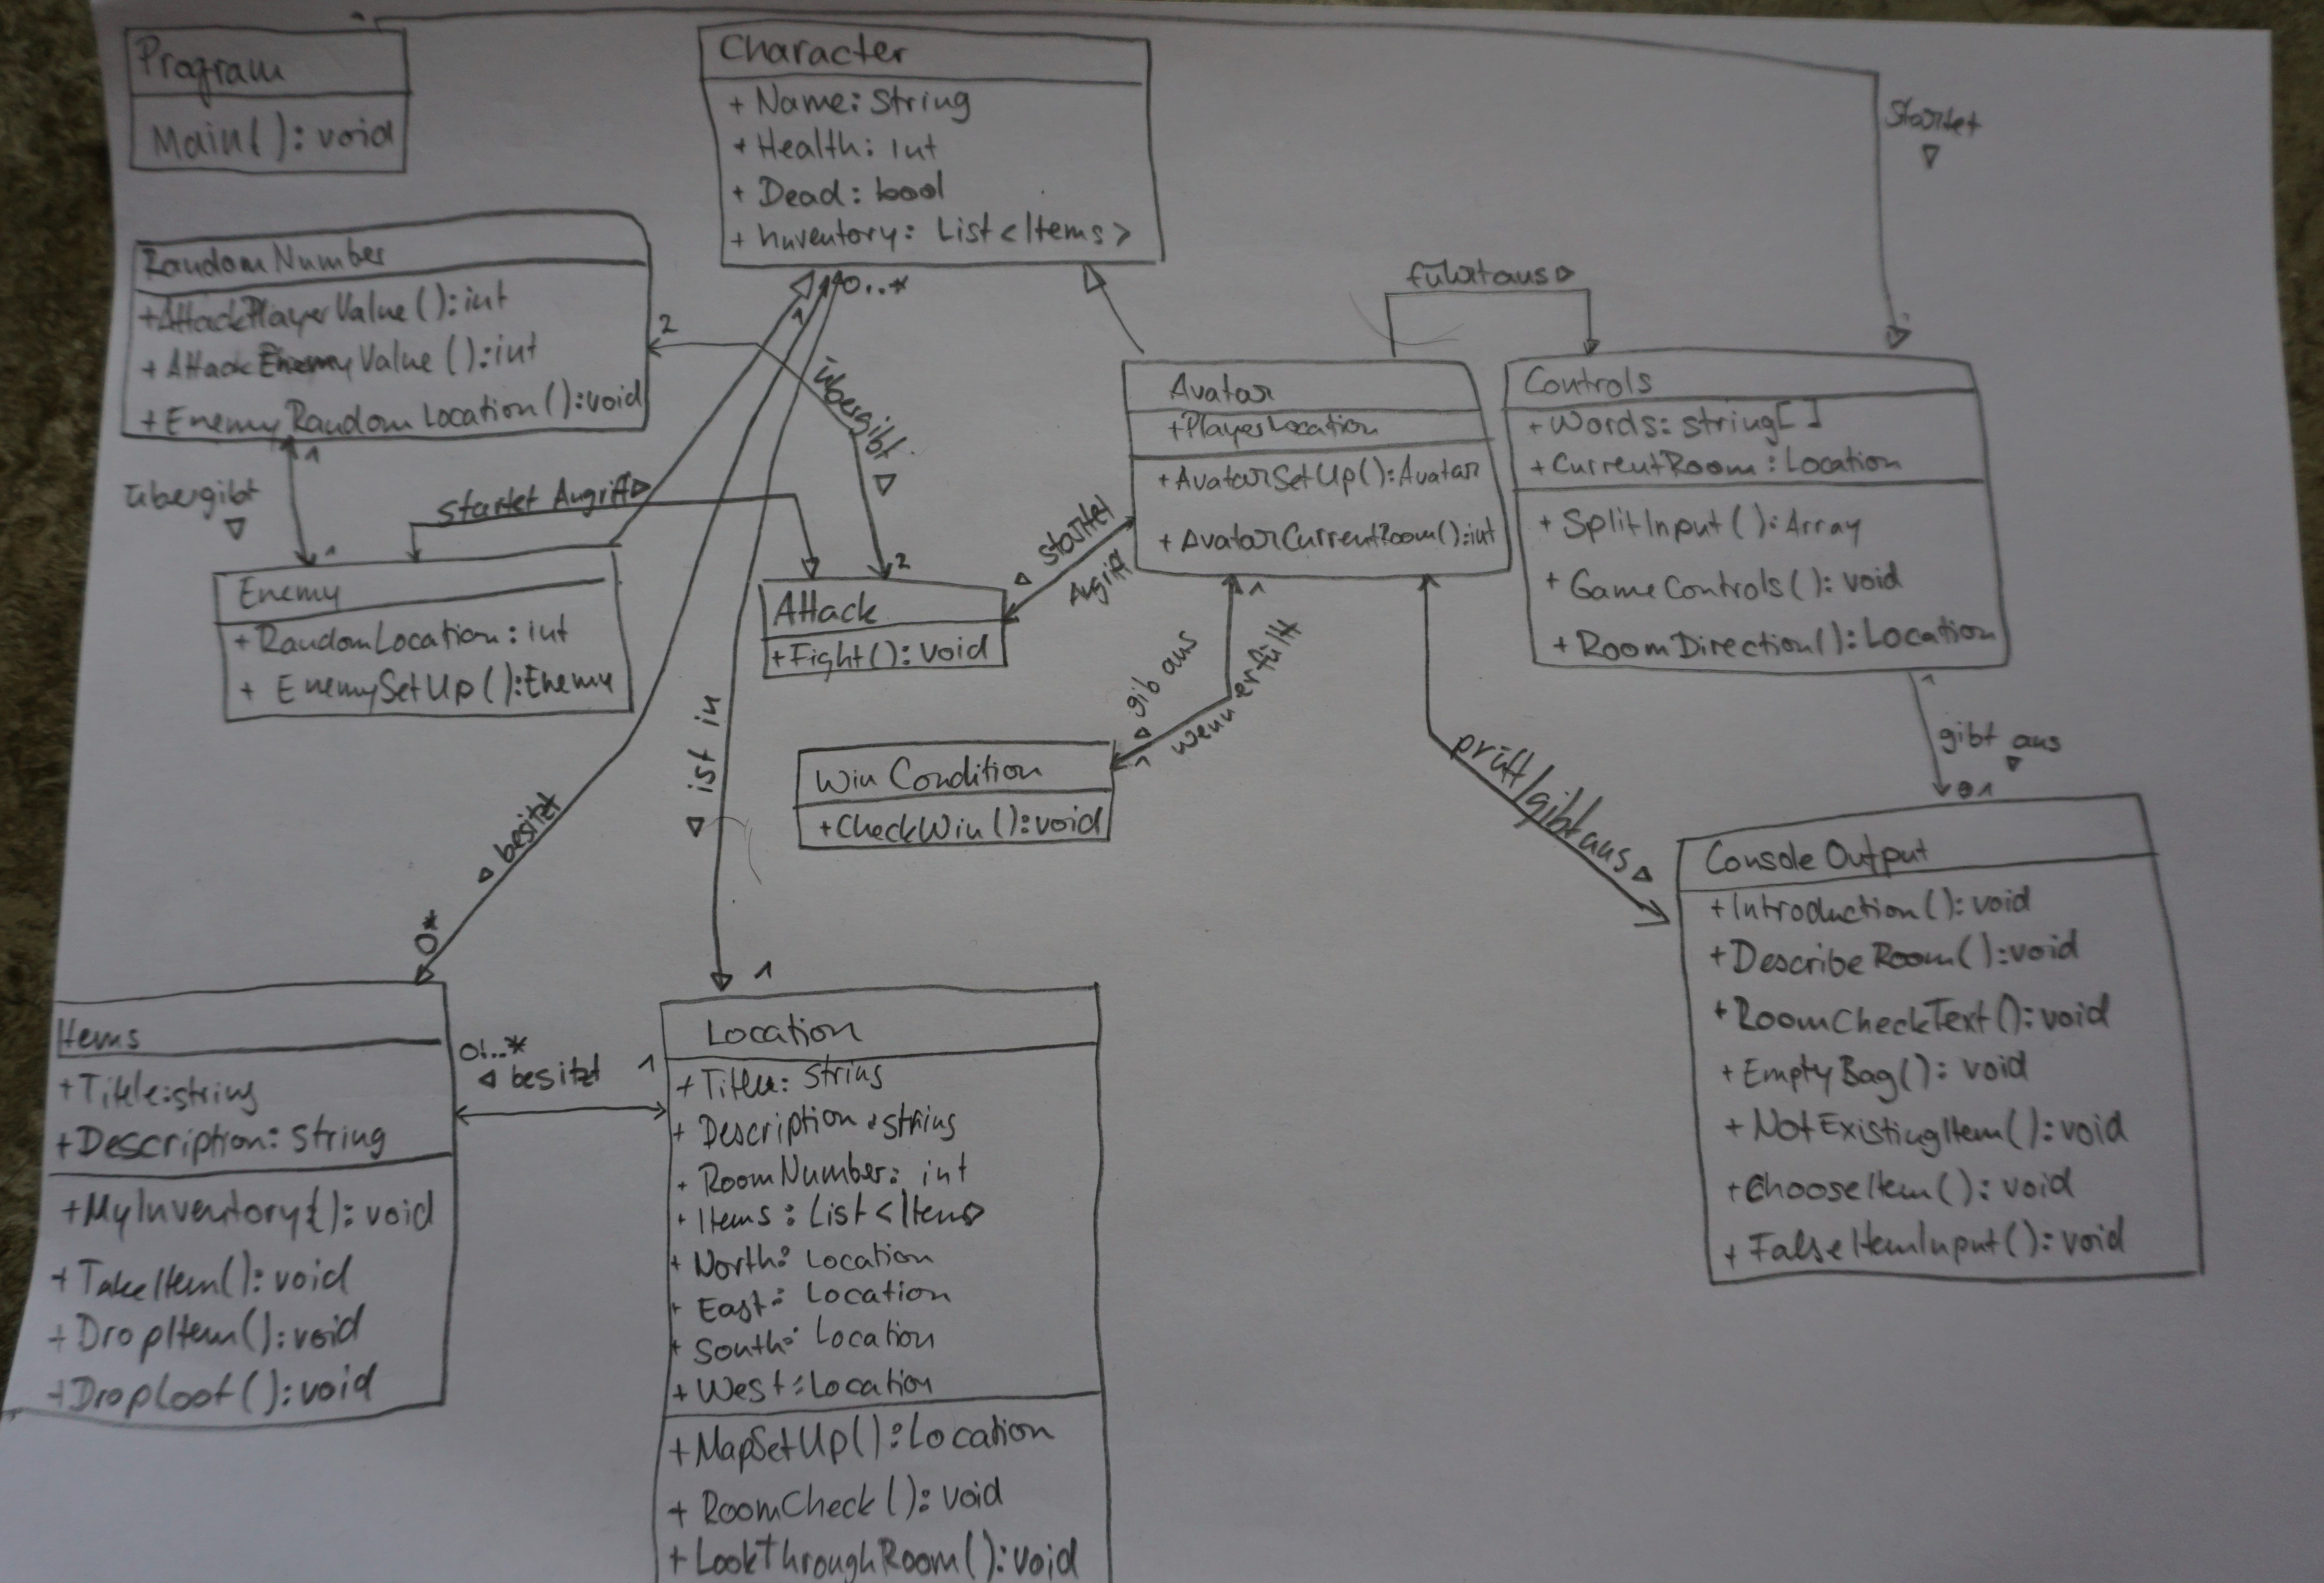 Program
Main(): void
Character
+ Name: String
+ Health: int
+ Dead: bool
+ Inventory: List<Items>
startet
RandomNumber
+AttackPlayerValue(): int
+ AttackEnemyValue(): int
+ EnemyRandomLocation(): void
2
1
0..*
führt aus
übergibt
1
übergibt
1
startet Angriff
2
Avatar
+PlayerLocation
+AvatarSetUp(): Avatar
+ AvatarCurrentRoom(): int
Controls
+Words: string[]
+CurrentRoom: Location
+ SplitInput(): Array
+ GameControls(): void
+ RoomDirection(): Location
startet
Angriff
Enemy
+RandomLocation: int
+ EnemySetUp(): Enemy
Attack
+Fight(): Void
1
gib aus
wenn erfüllt
1
1
gibt aus
1
prüft/gibt aus
ist in
besitzt
0*
Win Condition
+CheckWin(): void
Console Output
+Introduction(): void
+DescribeRoom(): void
+RoomCheckText(): void
+ EmptyBag(): void
+NotExistingItem(): void
+ChooseItem(): void
+ FalseItemInput(): void
1
Items
+Title: string
+Description: String
+MyInventory(): void
+TakeItem(): void
+DropItem(): void
+DropLoot(): void
0..*
besitzt
1
Location
+ Title: String
+ Description: string
+ RoomNumber: int
+ Items: List<Item>
+ North: Location
+ East: Location
+ South: Location
+ West: Location
+MapSetUp(): Location
+ RoomCheck(): void
+LookThroughRoom(): void